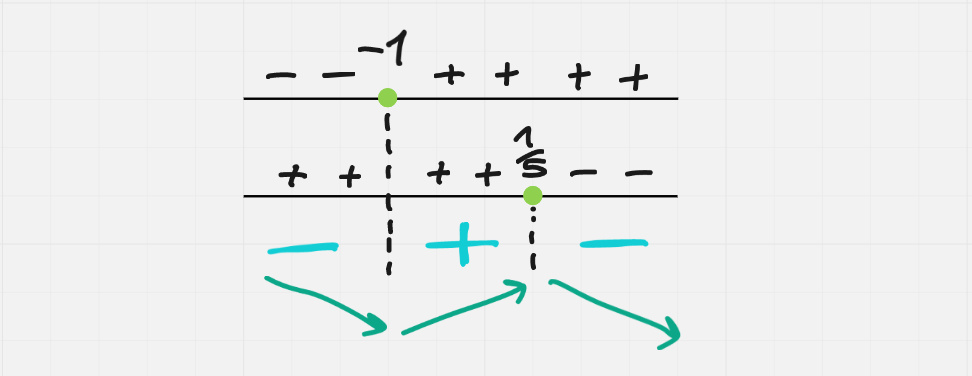 -1
- - + + + +
1/5
+ + + + - -
- + -